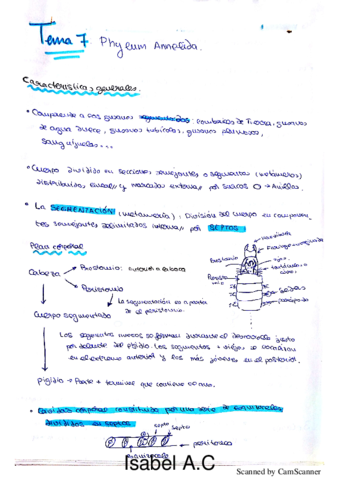 Tema 7 Phylum Annelida.
Características generales.
• Comprende a los gusanos segmentados: lombrices de Tierra, gusanos
de agua dulce, gusanos tubícolas, gusanos
sanguijuelas...
• Cuerpo dividido en secciones semejantes o segmentos (metámeros)
distribuidos, y marcados externas por surcos O → Anillos.
• La SEGMENTACIÓN (metamería): División del cuerpo en comparti
semejantes delimitados internas por SEPTOS
Plan corporal
Cabeza
Prostomio:
Peristomio
La segmentación es a partir
de el peristomio.
Cuerpo segmentado
Los segmentos nuevos se forman durante el desarrollo justo
por delante del pigidio. Los segmentos + viejos se encuentran
en el extremo anterior y los más jóvenes en el posterior.
Pigidio → Parte + terminal que contiene el ano.
Prostomio
ojos.
Sedas
• Cavidad corporal constituida por una serie de
divididos en septos
septo
septo
Isabel A.C
Scanned by CamScanner